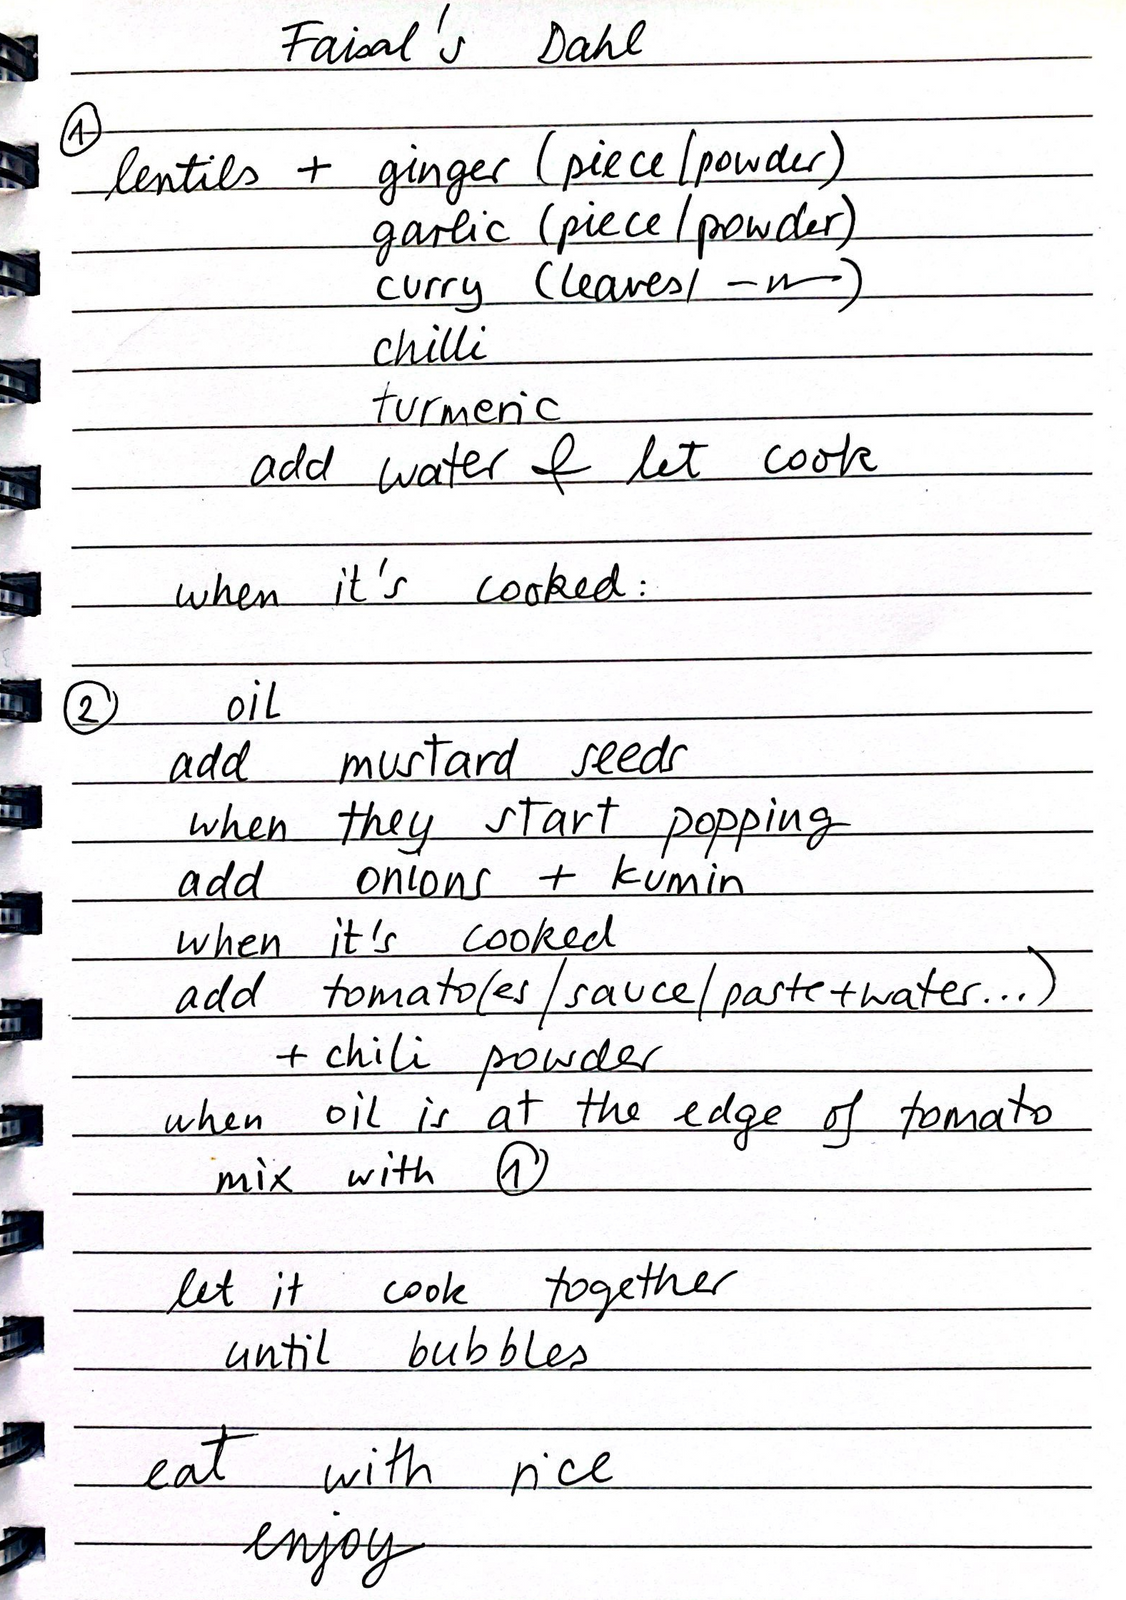 Faisal's Dahl
①
lentils + ginger (piece/powder)
garlic (piece/powder)
curry (leaves/ -〃-)
chilli
turmeric
add water & let cook
when it's cooked:
② oil
add mustard seeds
when they start popping
add onions + kumin
when it's cooked
add tomato(es/sauce/paste+water...)
+ chili powder
when oil is at the edge of tomato
mix with ①
let it cook together
until bubbles
eat with rice
enjoy